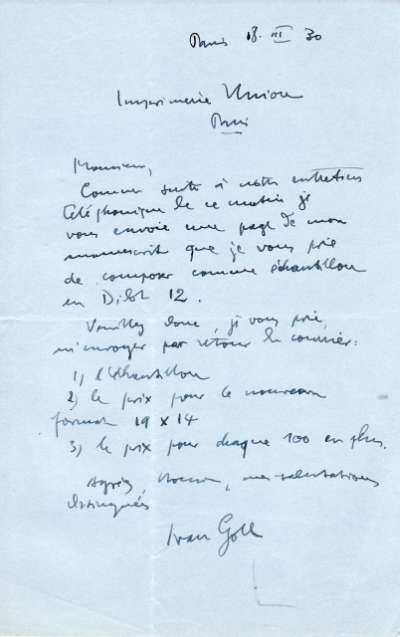 Paris 18. III 30
Imprimerie Union
Paris
Monsieur,
Comme suite à notre entretien
téléphonique de ce matin je
vous envoie une page de mon
manuscrit que je vous prie
de composer comme échantillon
en Didot 12.
Veuillez donc, je vous prie,
m'envoyer par retour du courrier:
1) l'échantillon
2) le prix pour le nouveau
format 19 x 14
3) le prix pour chaque 100 en plus.
Agréez, Monsieur, mes salutations
distinguées
Ivan Goll